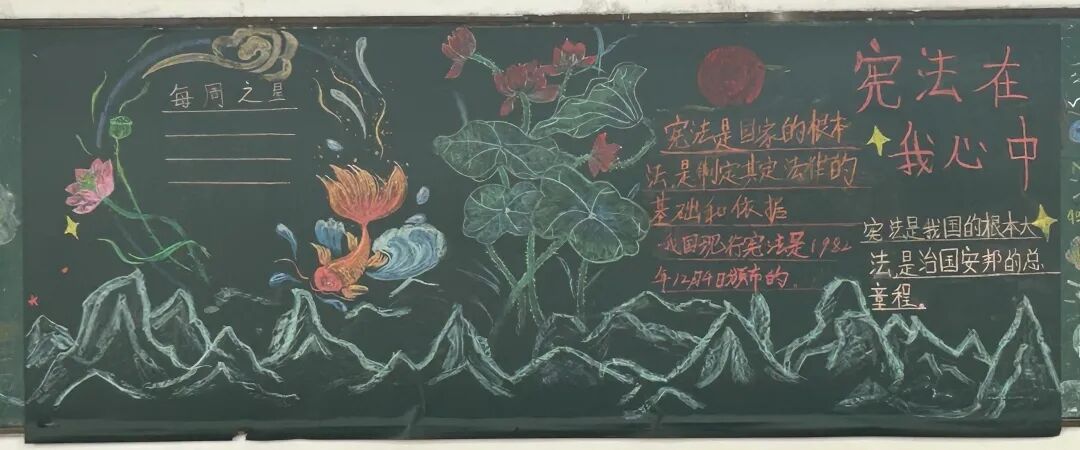 每周之星
宪法是国家的根本
法,是制定其它法律的
基础和依据
我国现行宪法是1982
年12月4日颁布的。
宪法在
我心中
宪法是我国的根本大
法,是治国安邦的总
章程。